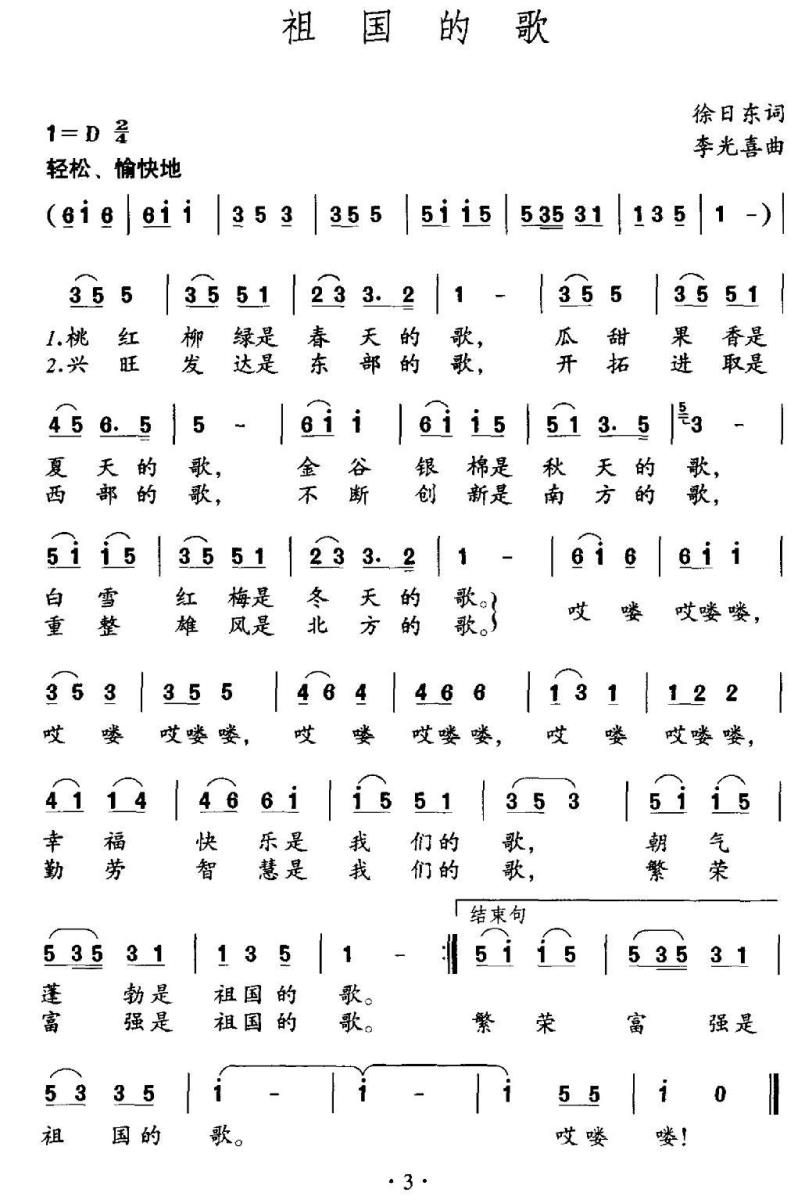 祖国的歌
徐日东词
1=D 2/4
李光喜曲
轻松、愉快地
(6i6 | 6i i | 35 3 | 35 5 | 5i i5 | 535 31 | 135 | 1 -) |
35 5 | 35 51 | 23 3. 2 | 1 - | 35 5 | 35 51 |
1.桃红 柳绿是 春天的歌, 瓜甜 果香是
2.兴旺 发达是 东部的歌, 开拓 进取是
45 6. 5 | 5 - | 6i i | 6i i5 | 51 3. 5 | 5 3 - |
夏天的歌, 金谷 银棉是 秋天的歌,
西部的歌, 不断 创新是 南方的歌,
5i i5 | 35 51 | 23 3. 2 | 1 - | 6i 6 | 6i i |
白雪 红梅是 冬天的歌。 哎喽 哎喽喽,
重整 雄风是 北方的歌。
35 3 | 35 5 | 46 4 | 46 6 | 13 1 | 12 2 |
哎喽 哎喽喽, 哎喽 哎喽喽, 哎喽 哎喽喽,
41 14 | 46 6i | i5 51 | 35 3 | 5i i5 |
幸福 快乐是 我们的歌, 朝气
勤劳 智慧是 我们的歌, 繁荣
结束句
535 31 | 13 5 | 1 - :| 5i i5 | 535 31 |
蓬勃是 祖国的歌。
富强是 祖国的歌。 繁荣 富强是
53 35 | i - | i - | i 55 | i 0 ||
祖国的歌。 哎喽喽!
·3·